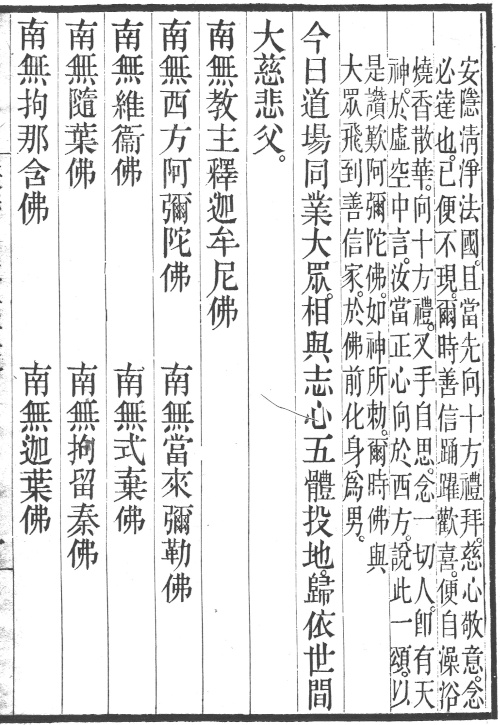 安隱清淨法國。且當先向十方禮拜。慈心敬意。念
必達也。已便不現。爾時善信踊躍歡喜。便自澡浴
燒香散華。向十方禮。叉手自思。念一切人。卽有天
神。於虛空中言。汝當正心向於西方。說此一頌。以
是讚歎阿彌陀佛。如神所勅。爾時佛與
大眾飛到善信家。於佛前化身爲男。
今日道場同業大眾。相與志心五體投地。歸依世間
大慈悲父。
南無教主釋迦牟尼佛
南無西方阿彌陀佛　南無當來彌勒佛
南無維衞佛　南無式棄佛
南無隨葉佛　南無拘留秦佛
南無拘那含佛　南無迦葉佛